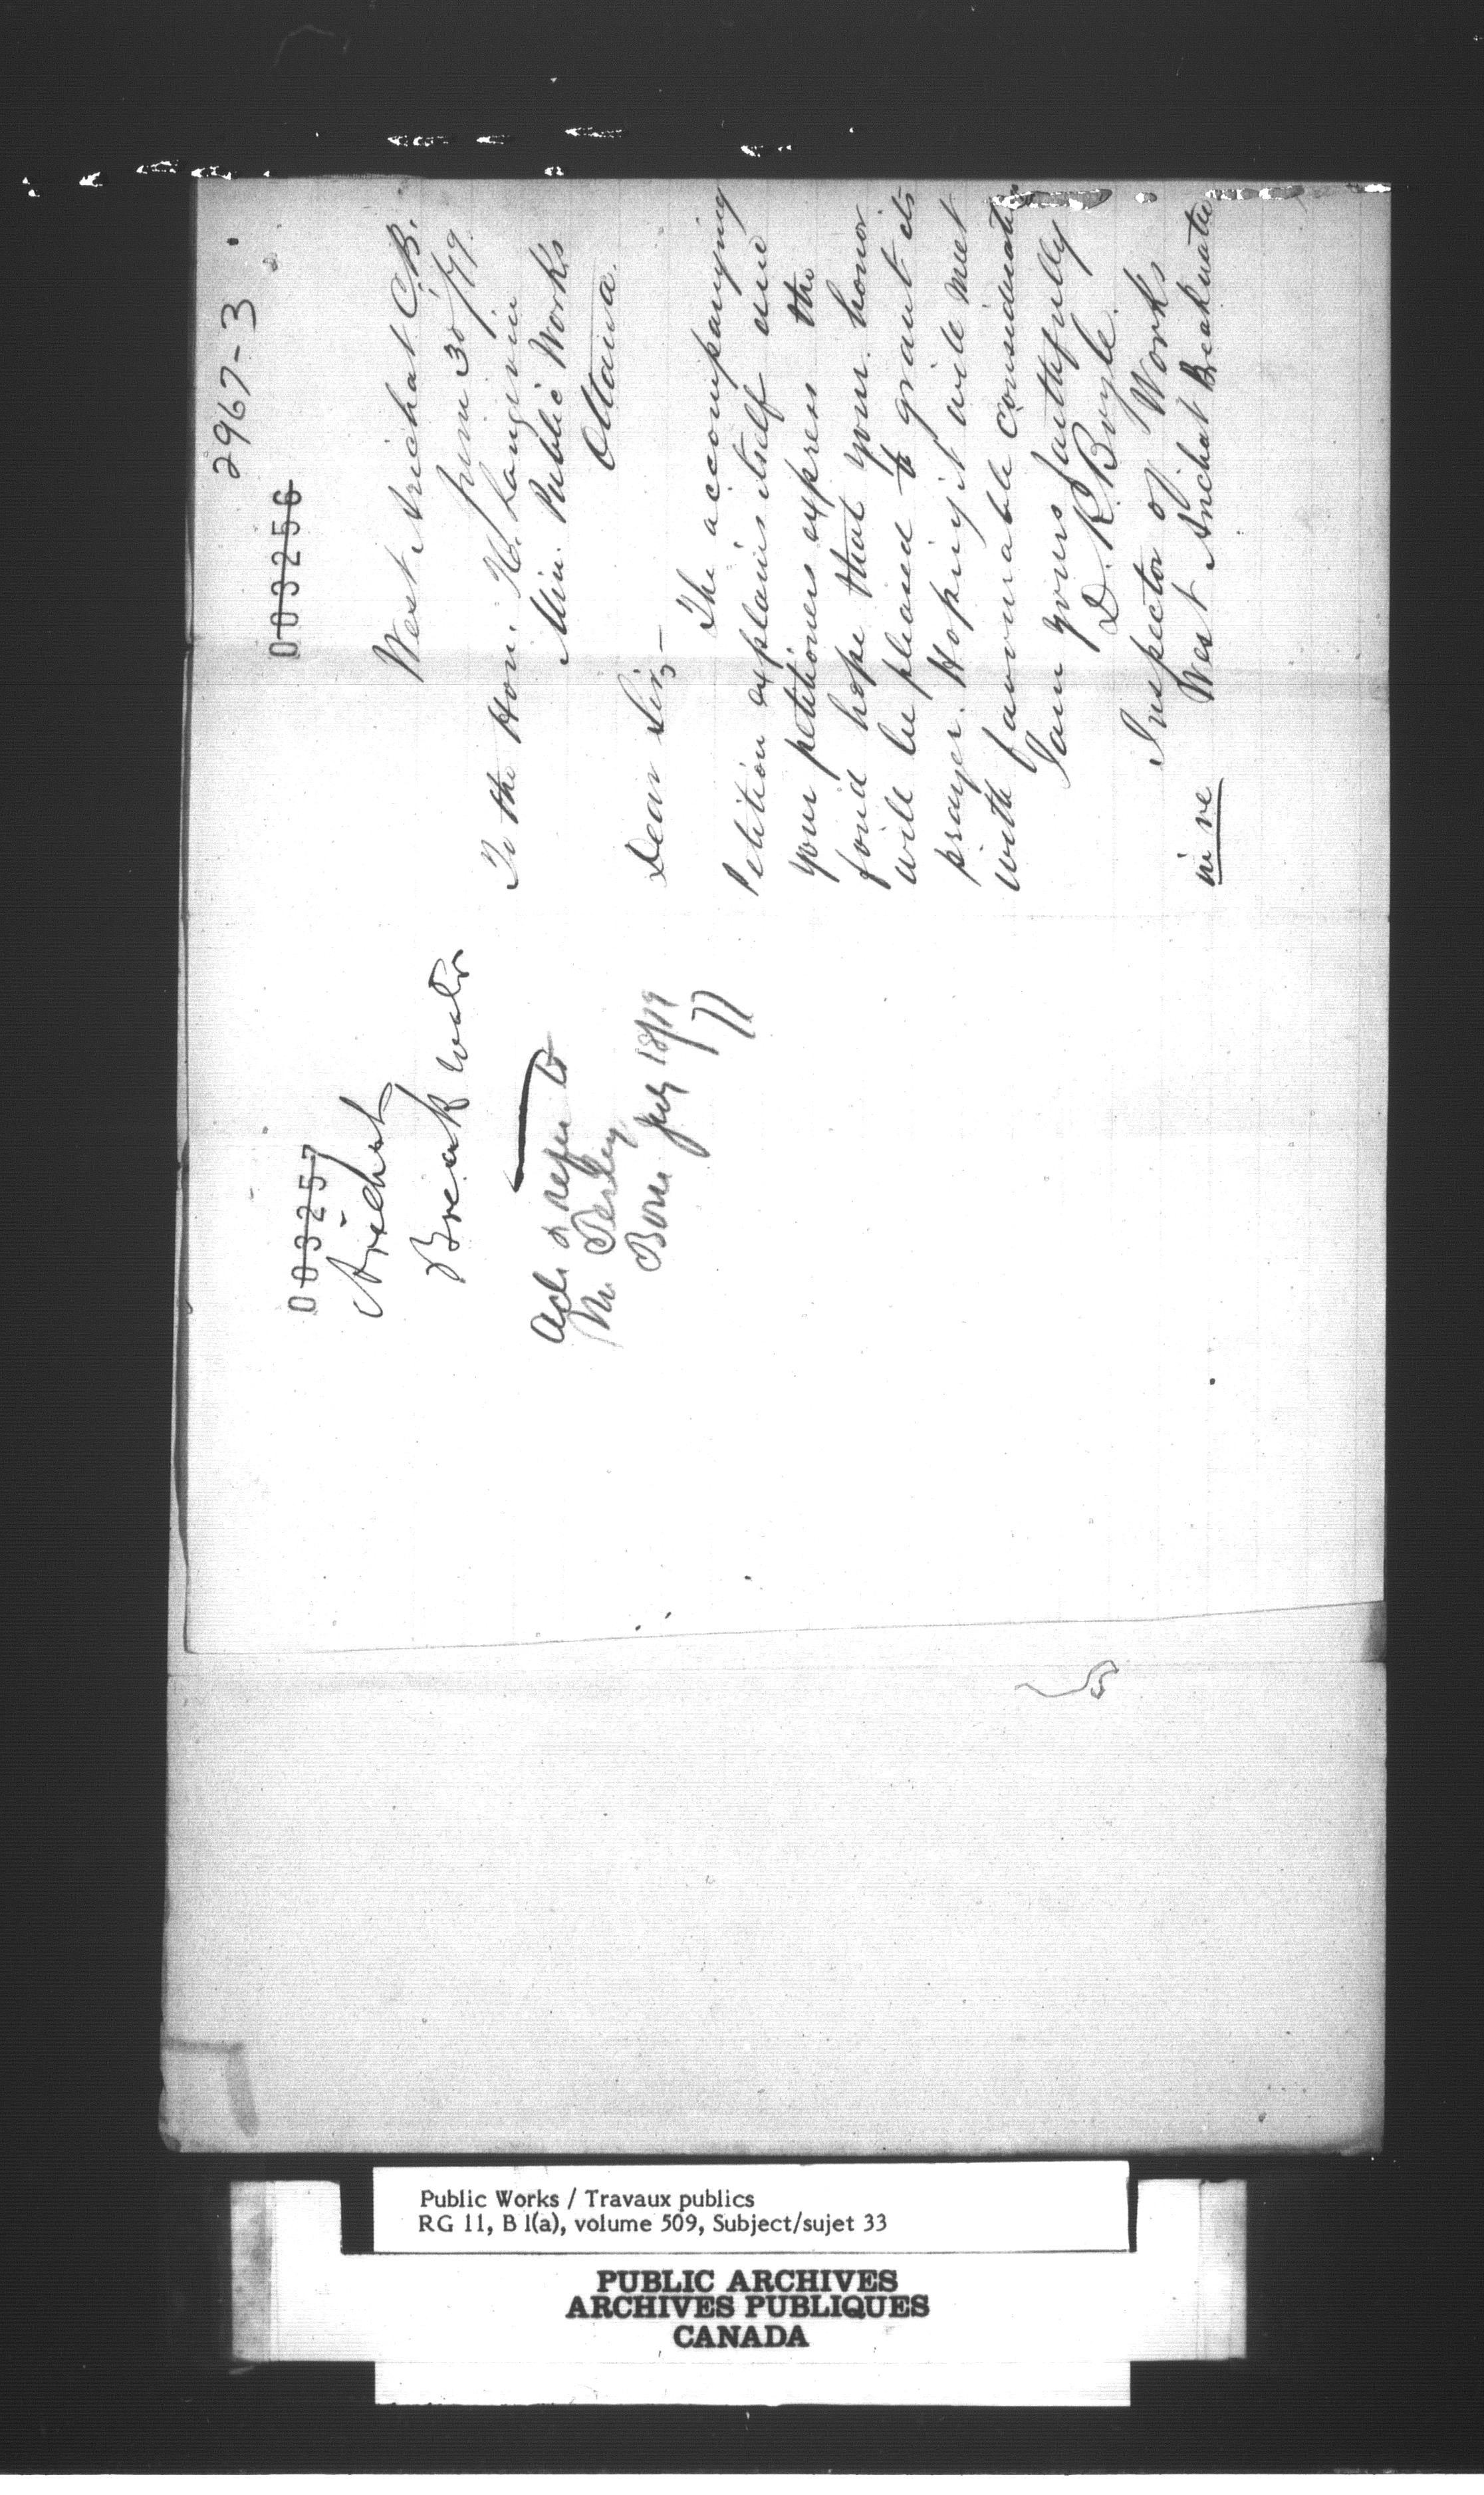 2967-3
003256
West Arichat C.B.
June 30/79
To the Hon. H. Langevin
Min. Public Works
Ottawa.
Dear Sir,-
The accompanying
Petition explains itself and
your petitioners express the
fond hope that your honor
will be pleased to grant its
prayer. Hoping it will meet
with favourable consideration
I am yours faithfully
D. R. Boyle.
Inspector of Works
in re West Arichat Breakwater
003257
Arichat
Break water
Ack & refer to
Mr Perley
July 18/79
Public Works / Travaux publics
RG 11, B 1(a), volume 509, Subject/sujet 33
PUBLIC ARCHIVES
ARCHIVES PUBLIQUES
CANADA